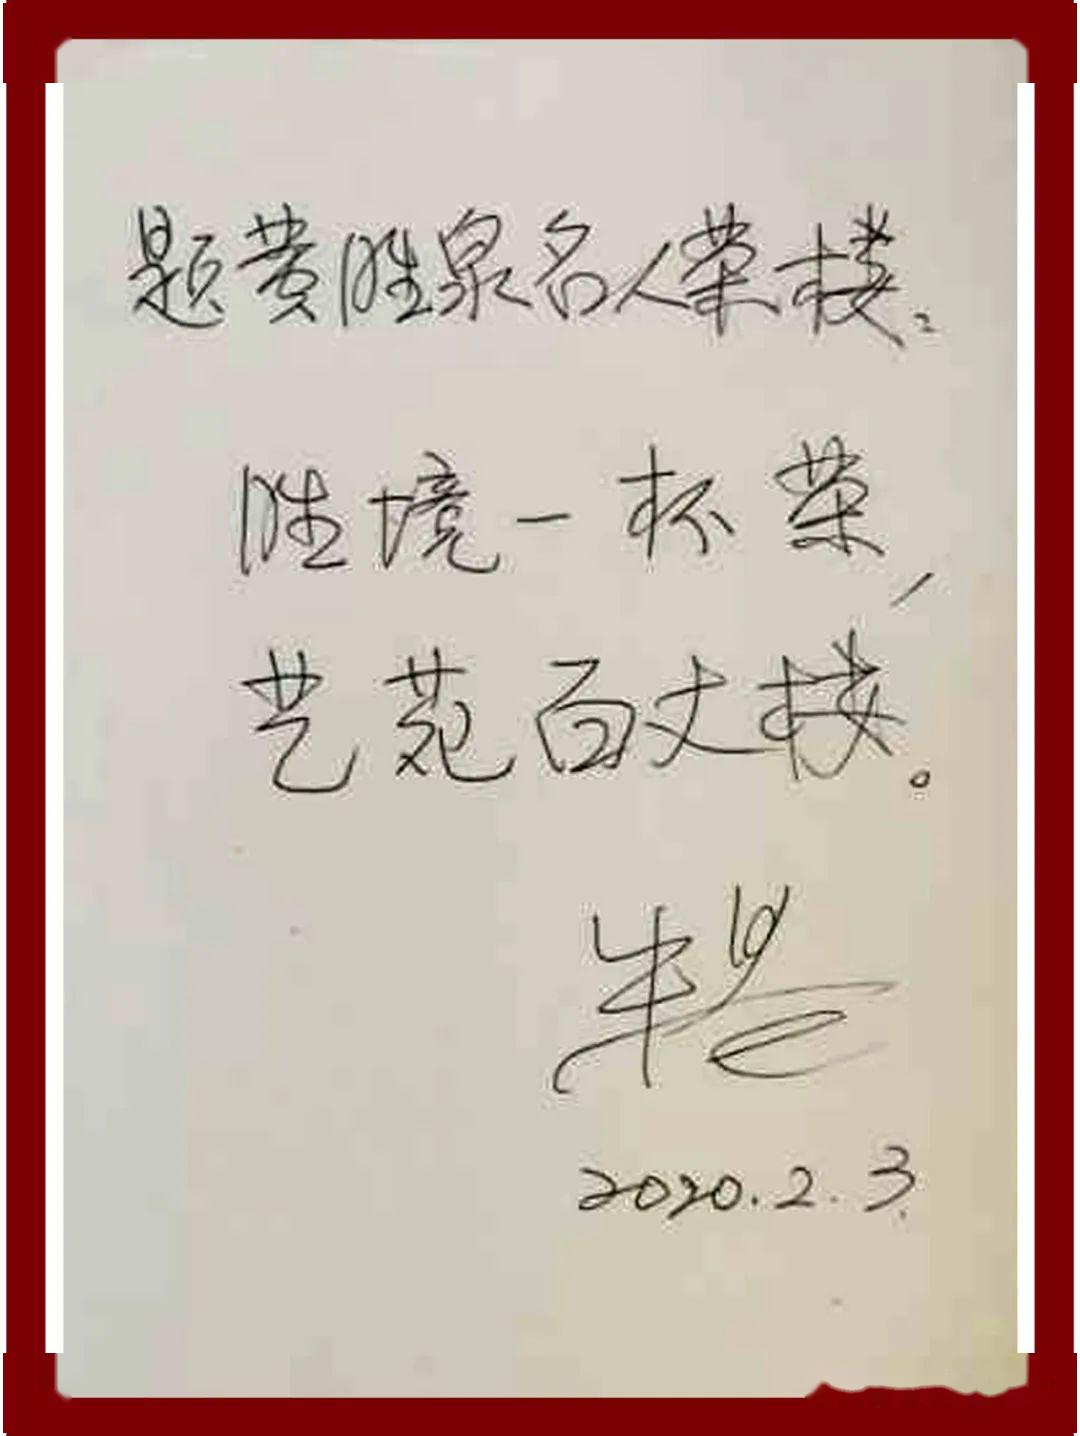 题黄胜泉名人茶楼:
胜境一杯茶,
艺苑百丈楼。
2020.2.3